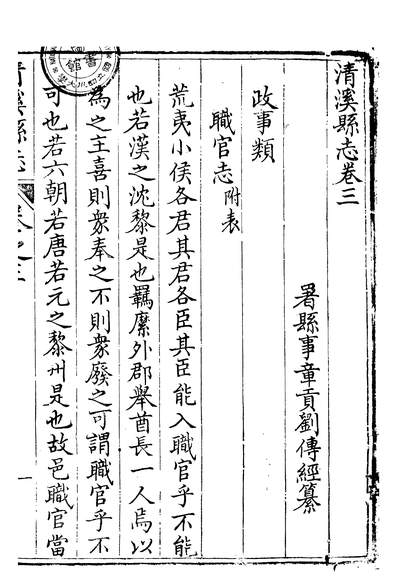 清溪縣志卷三
署縣事童貢劉傳經纂
政事類
職官志附表
荒夷小侯各君其君各臣其臣能入職官乎不能
也若漢之沈黎是也羈縻外郡舉酋長一人焉以
為之主喜則衆奉之不則衆廢之可謂職官乎不
可也若六朝若唐若元之黎州是也故邑職官當
清溪縣志
卷之三
一